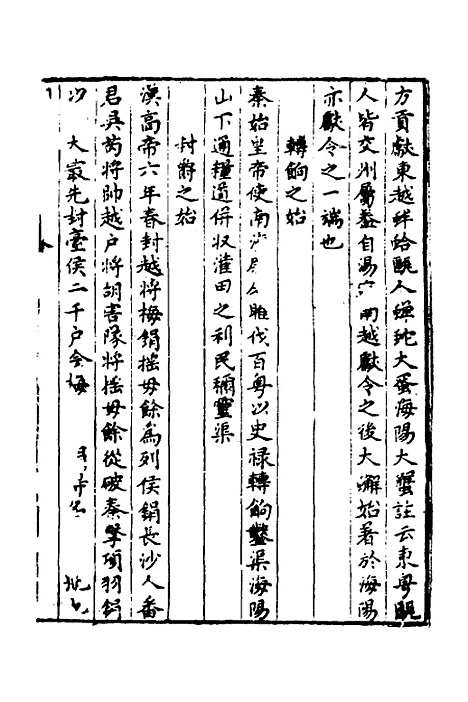 方貢獻東越蚌蛤甌人蟬蛇大蜃海陽大蟹註云東粵甌
人皆交州屬蓋自湯 南越獻令之後大蠏始著於海陽
亦獻令之一端也
轉餉之始
秦始皇帝使南 尉 睢伐百粵以史祿轉餉鑿渠海陽
山下通糧道併収灌田之利民穪靈渠
封爵之始
漢高帝六年春封越將梅鋗搖毋餘為列侯鋗長沙人番
君吳芮將帥越戶將胡害隊將搖毋餘從破秦擊項羽鋗
以 大 先封臺侯二千戶 海